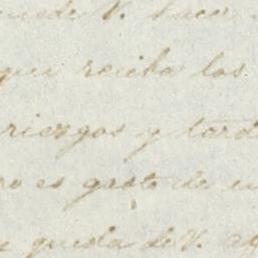 de V. hacer
que reciba las
riesgos y tard
es gasto de
queda de V.